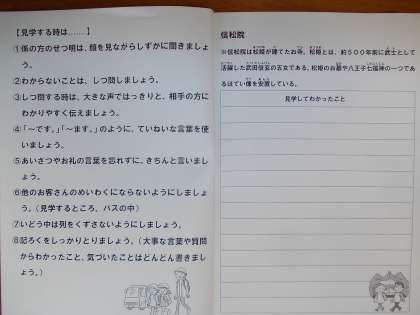 【見学する時は……】
①係の方のせつ明は、顔を見ながらしずかに聞きましょ
う。
②わからないことは、しつ問しましょう。
③しつ問する時は、大きな声ではっきりと、相手の方に
わかりやすく伝えましょう。
④「〜です。」「〜ます。」のように、ていねいな言葉を使
いましょう。
⑤あいさつやお礼の言葉を忘れずに、きちんと言いまし
ょう。
⑥他のお客さんのめいわくにならないようにしましょ
う。（見学するところ、バスの中）
⑦いどう中は列をくずさないようにしましょう。
⑧記ろくをしっかりとりましょう。（大事な言葉や質問
からわかったこと、気づいたことはどんどん書きまし
ょう。）
信松院
※信松院は松姫が建てたお寺。松姫とは、約５００年前に武士として
活躍した武田信玄の五女である。松姫のお墓や八王子七福神の一つであ
るほてい像を安置している。
見学してわかったこと